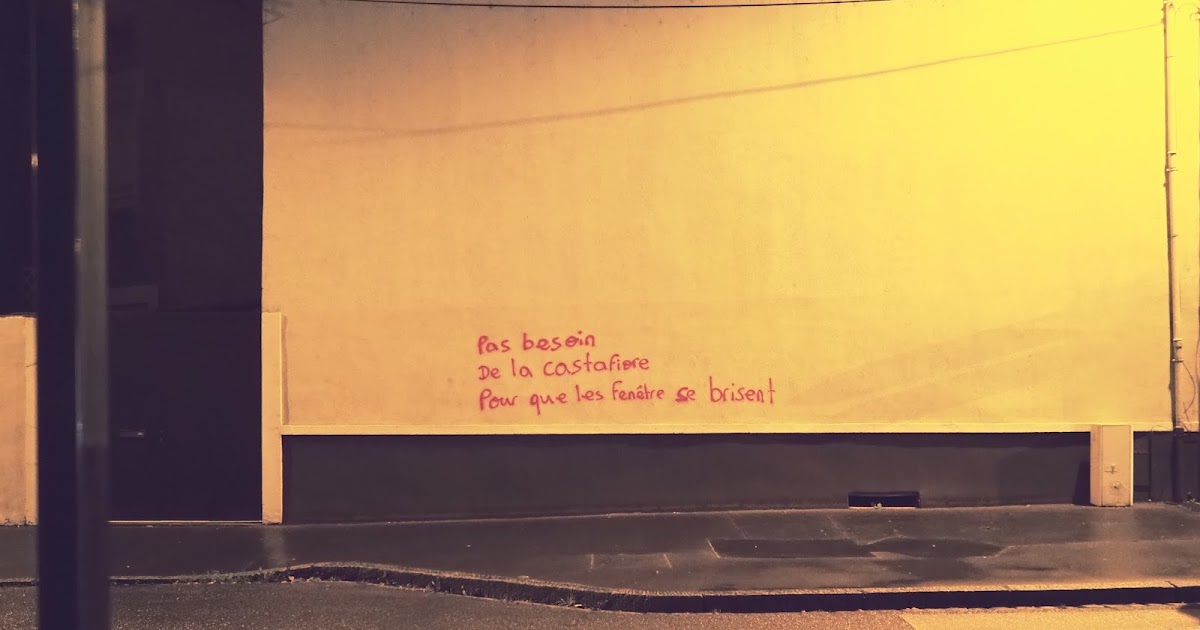 Pas besoin
De la castafiore
Pour que les fenêtre se brisent